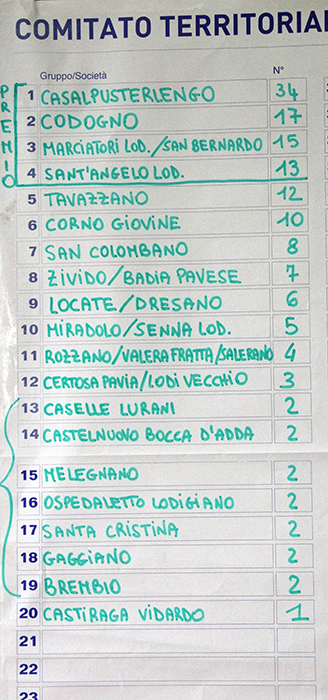 COMITATO TERRITORIAL
Gruppo/Società N°
PREMIO
1 CASALPUSTERLENGO 34
2 CODOGNO 17
3 MARCIATORI LOD./SAN BERNARDO 15
4 SANT'ANGELO LOD. 13
5 TAVAZZANO 12
6 CORNO GIOVINE 10
7 SAN COLOMBANO 8
8 ZIVIDO/BADIA PAVESE 7
9 LOCATE/DRESANO 6
10 MIRADOLO/SENNA LOD. 5
11 ROZZANO/VALERA FRATTA/SALERANO 4
12 CERTOSA PAVIA/LODI VECCHIO 3
13 CASELLE LURANI 2
14 CASTELNUOVO BOCCA D'ADDA 2
15 MELEGNANO 2
16 OSPEDALETTO LODIGIANO 2
17 SANTA CRISTINA 2
18 GAGGIANO 2
19 BREMBIO 2
20 CASTIRAGA VIDARDO 1
21
22
23